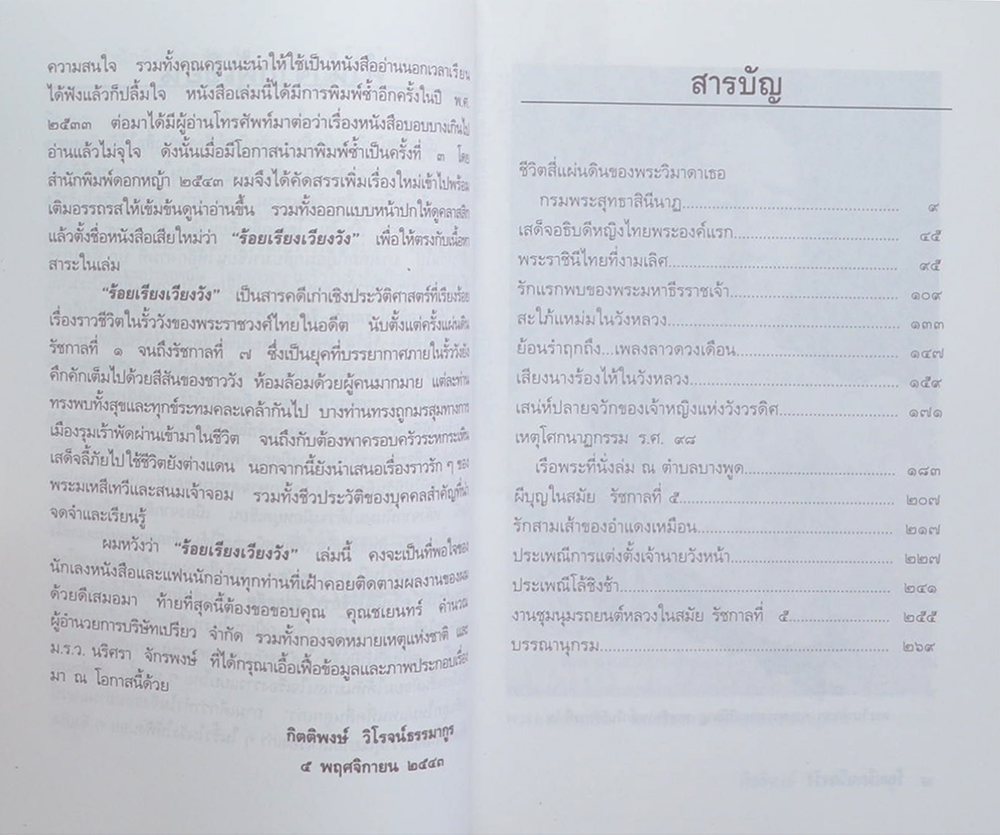 ความสนใจ รวมทั้งคุณครูแนะนำให้ใช้เป็นหนังสืออ่านนอกเวลาเรียน
ได้ฟังแล้วก็ปลื้มใจ หนังสือเล่มนี้ได้มีการพิมพ์ซ้ำอีกครั้งในปี พ.ศ.
๒๕๓๓ ต่อมาได้มีผู้อ่านโทรศัพท์มาต่อว่าเรื่องหนังสือบอบบางเกินไป
อ่านแล้วไม่จุใจ ดังนั้นเมื่อมีโอกาสนำมาพิมพ์ซ้ำเป็นครั้งที่ ๓ โดย
สำนักพิมพ์ดอกหญ้า ๒๕๔๓ ผมจึงได้คัดสรรเพิ่มเรื่องใหม่เข้าไปพร้อม
เติมอรรถรสให้เข้มข้นดูน่าอ่านขึ้น รวมทั้งออกแบบหน้าปกให้ดูคลาสสิก
แล้วตั้งชื่อหนังสือเสียใหม่ว่า “ร้อยเรียงเวียงวัง” เพื่อให้ตรงกับเนื้อหา
สาระในเล่ม
“ร้อยเรียงเวียงวัง” เป็นสารคดีเก่าเชิงประวัติศาสตร์ที่เรียงร้อย
เรื่องราวชีวิตในรั้ววังของพระราชวงศ์ไทยในอดีต นับตั้งแต่ครั้งแผ่นดิน
รัชกาลที่ ๑ จนถึงรัชกาลที่ ๗ ซึ่งเป็นยุคที่บรรยากาศภายในรั้ววังยัง
คึกคักเต็มไปด้วยสีสันของชาววัง ห้อมล้อมด้วยผู้คนมากมาย แต่ละท่าน
ทรงพบทั้งสุขและทุกข์ระทมคละเคล้ากันไป บางท่านทรงถูกมรสุมทางการ
เมืองรุมเร้าพัดผ่านเข้ามาในชีวิต จนถึงกับต้องพาครอบครัวระหกระเหิน
เสด็จลี้ภัยไปใช้ชีวิตยังต่างแดน นอกจากนี้ยังนำเสนอเรื่องราวรัก ๆ ของ
พระมเหสีเทวีและสนมเจ้าจอม รวมทั้งชีวประวัติของบุคคลสำคัญที่น่า
จดจำและเรียนรู้
ผมหวังว่า “ร้อยเรียงเวียงวัง” เล่มนี้ คงจะเป็นที่พอใจของ
นักเลงหนังสือและแฟนนักอ่านทุกท่านที่เฝ้าคอยติดตามผลงานของผม
ด้วยดีเสมอมา ท้ายที่สุดนี้ต้องขอขอบคุณ คุณชเยนทร์ คำนวณ
ผู้อำนวยการบริษัทเปรียว จำกัด รวมทั้งกองจดหมายเหตุแห่งชาติ และ
ม.ร.ว. นริศรา จักรพงษ์ ที่ได้กรุณาเอื้อเฟื้อข้อมูลและภาพประกอบเรื่อง
มา ณ โอกาสนี้ด้วย
กิตติพงษ์ วิโรจน์ธรรมากูร
๕ พฤศจิกายน ๒๕๔๓
สารบัญ
ชีวิตสี่แผ่นดินของพระวิมาดาเธอ
กรมพระสุทธาสินีนาฏ ๙
เสด็จอธิบดีหญิงไทยพระองค์แรก ๔๕
พระราชินีไทยที่งามเลิศ ๙๕
รักแรกพบของพระมหาธีรราชเจ้า ๑๐๙
สะใภ้แหม่มในวังหลวง ๑๓๓
ย้อนรำฤกถึง...เพลงลาวดวงเดือน ๑๔๗
เสียงนางร้องไห้ในวังหลวง ๑๕๙
เสน่ห์ปลายจวักของเจ้าหญิงแห่งวังวรดิศ ๑๗๑
เหตุโศกนาฏกรรม ร.ศ. ๙๘
เรือพระที่นั่งล่ม ณ ตำบลบางพูด ๑๘๓
ผีบุญในสมัย รัชกาลที่ ๕ ๒๐๗
รักสามเส้าของอำแดงเหมือน ๒๑๗
ประเพณีการแต่งตั้งเจ้านายวังหน้า ๒๒๗
ประเพณีโล้ชิงช้า ๒๔๑
งานชุมนุมรถยนต์หลวงในสมัย รัชกาลที่ ๕ ๒๕๕
บรรณานุกรม ๒๖๙